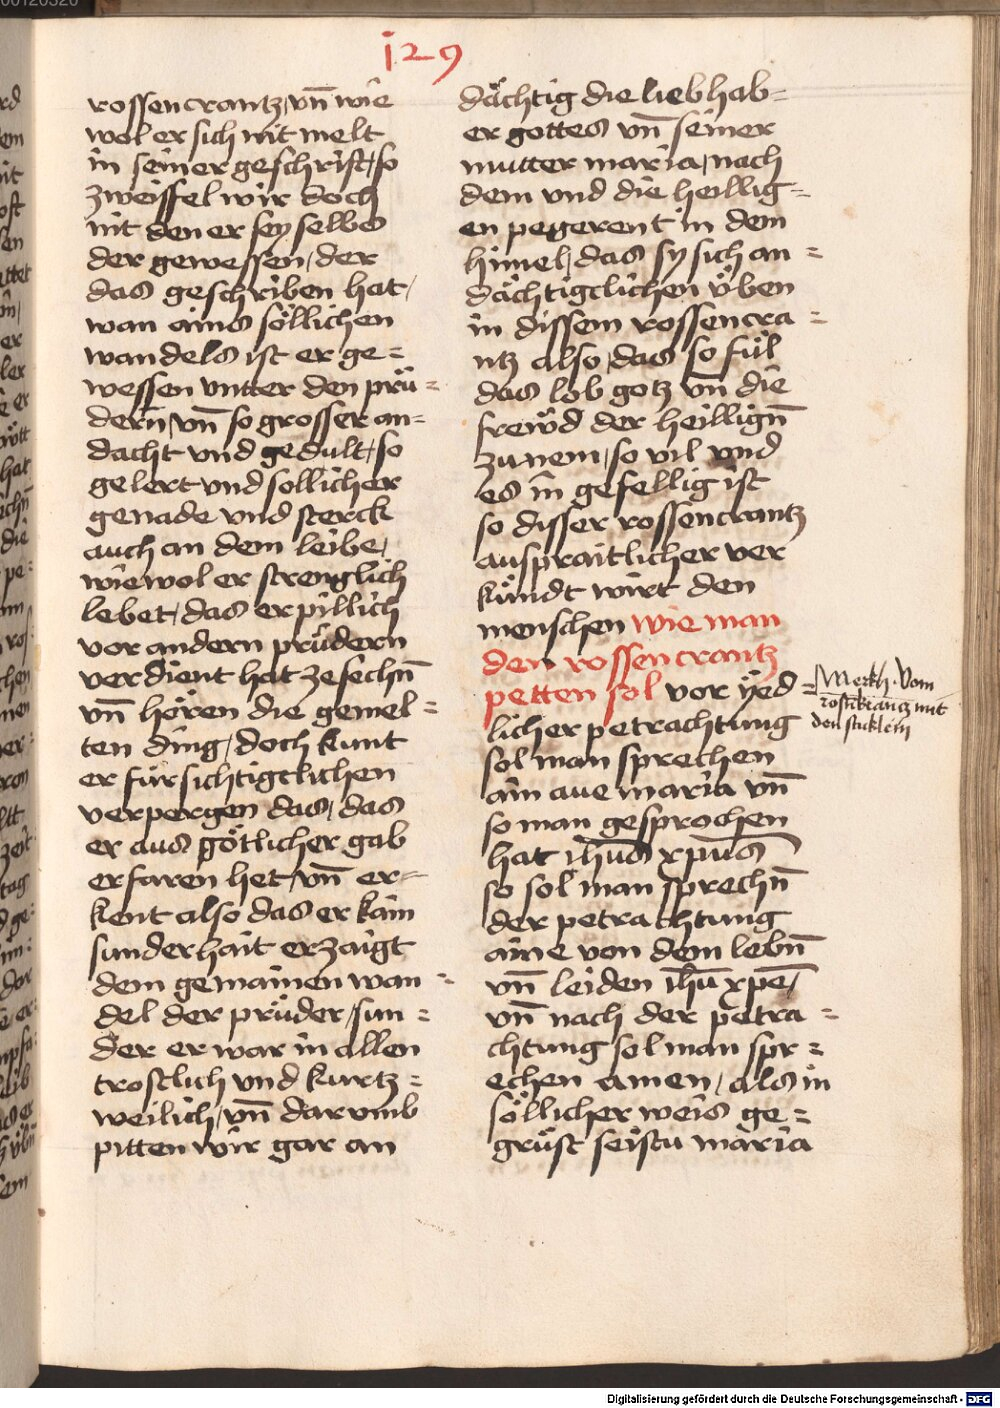 129
rossencrantz, vn̄ wie
wol er sich nit melt
in seiner geschrift, so
zweiffel wir doch
nit den er sey selbs
der gewessen, der
das geschriben hat,
wan ains söllichen
wandels ist er ge=
wessen vnter den prü=
dern̄, vn̄ so grosser an=
dacht vnd gedult, so
gelert vnd sollicher
genade vnd sterck
auch an dem leibe,
wie wol er strenglich
lebet, das er pillich
vor andern prüdern
verdient hat ze sechn̄
vn̄ hören die gemel=
ten ding, doch kunt
er fürsichtigclichen
verpergen das, das
er aus götlicher gab
erfaren het, vn̄ er=
kent also das er kain
sunderhait erzaigt
dem gemainen wan=
del der prüder, sun=
der er war in allen
trostlich vnd kurtz=
weilich, vn̄ darvmb
pitten wir gar an
dächtig die liebhab=
er gottes vn̄ seiner
mutter maria, nach
dem vnd die heillig=
en pegerent in dem
himel, das sy sich an=
dächtigclichen üben
in dissem rossencra=
ntz also, das so fül
das lob gotz vn̄ die
frewd der heillign̄
zu nem, so vil vnd
es in gefellig ist
so disser rossencrantz
auspraitlicher ver
kündt wirt den
menschen wie man
den rossencrantz
petten sol vor yed=
licher petrachtung
sol man sprechen
ain aue maria vn̄
so man gesprochen
hat ih̄us xp̄us
so sol man sprechn̄
der petrachtung
aine von dem lebn̄
vn̄ leiden ih̄u xp̄e,
vn̄ nach der petra=
chtung sol man spr=
echen amen, als in
söllicher weis ge=
grüst seistu maria
Merkh. Vom
rosnkrantz mit
den stucklein
00120320
Digitalisierung gefördert durch die Deutsche Forschungsgemeinschaft - DFG